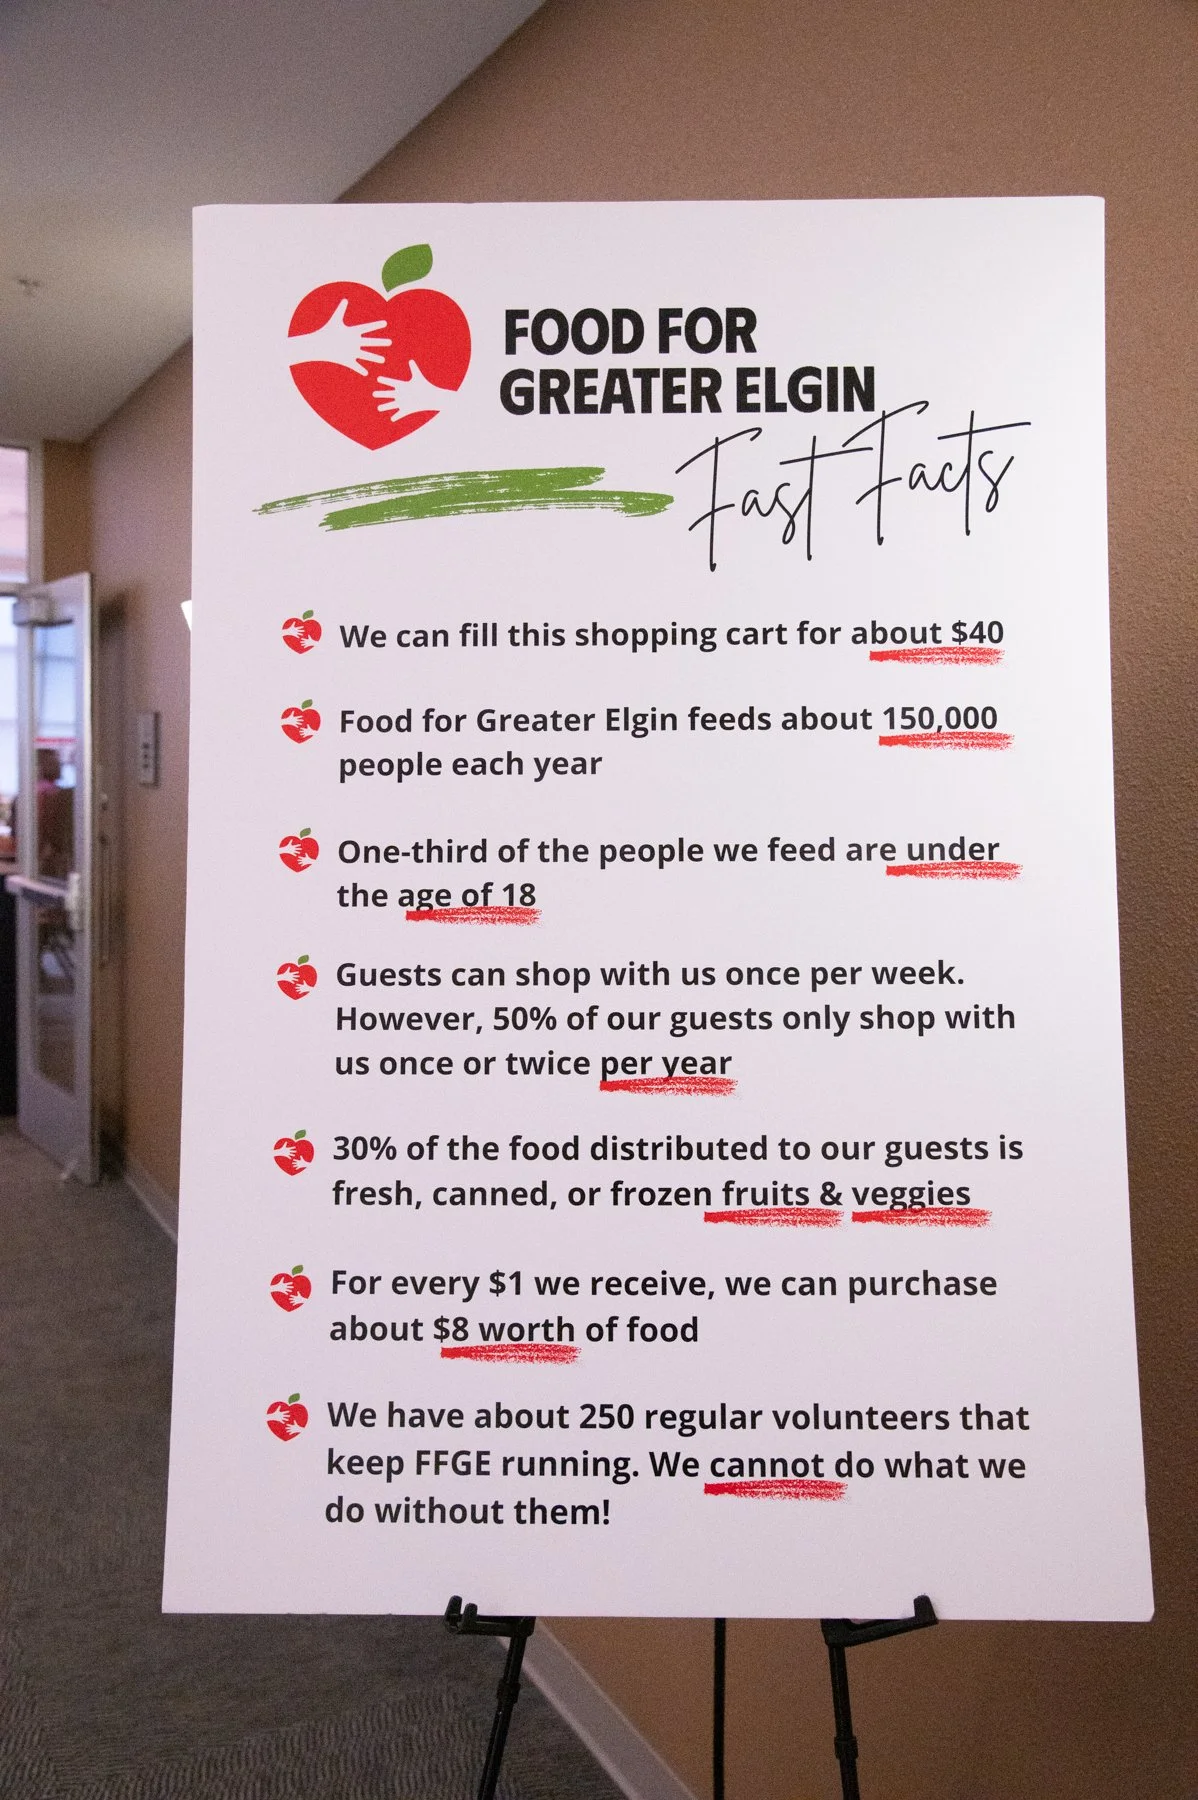 FOOD FOR
GREATER ELGIN
Fast Facts
We can fill this shopping cart for about $40
Food for Greater Elgin feeds about 150,000
people each year
One-third of the people we feed are under
the age of 18
Guests can shop with us once per week.
However, 50% of our guests only shop with
us once or twice per year
30% of the food distributed to our guests is
fresh, canned, or frozen fruits & veggies
For every $1 we receive, we can purchase
about $8 worth of food
We have about 250 regular volunteers that
keep FFGE running. We cannot do what we
do without them!